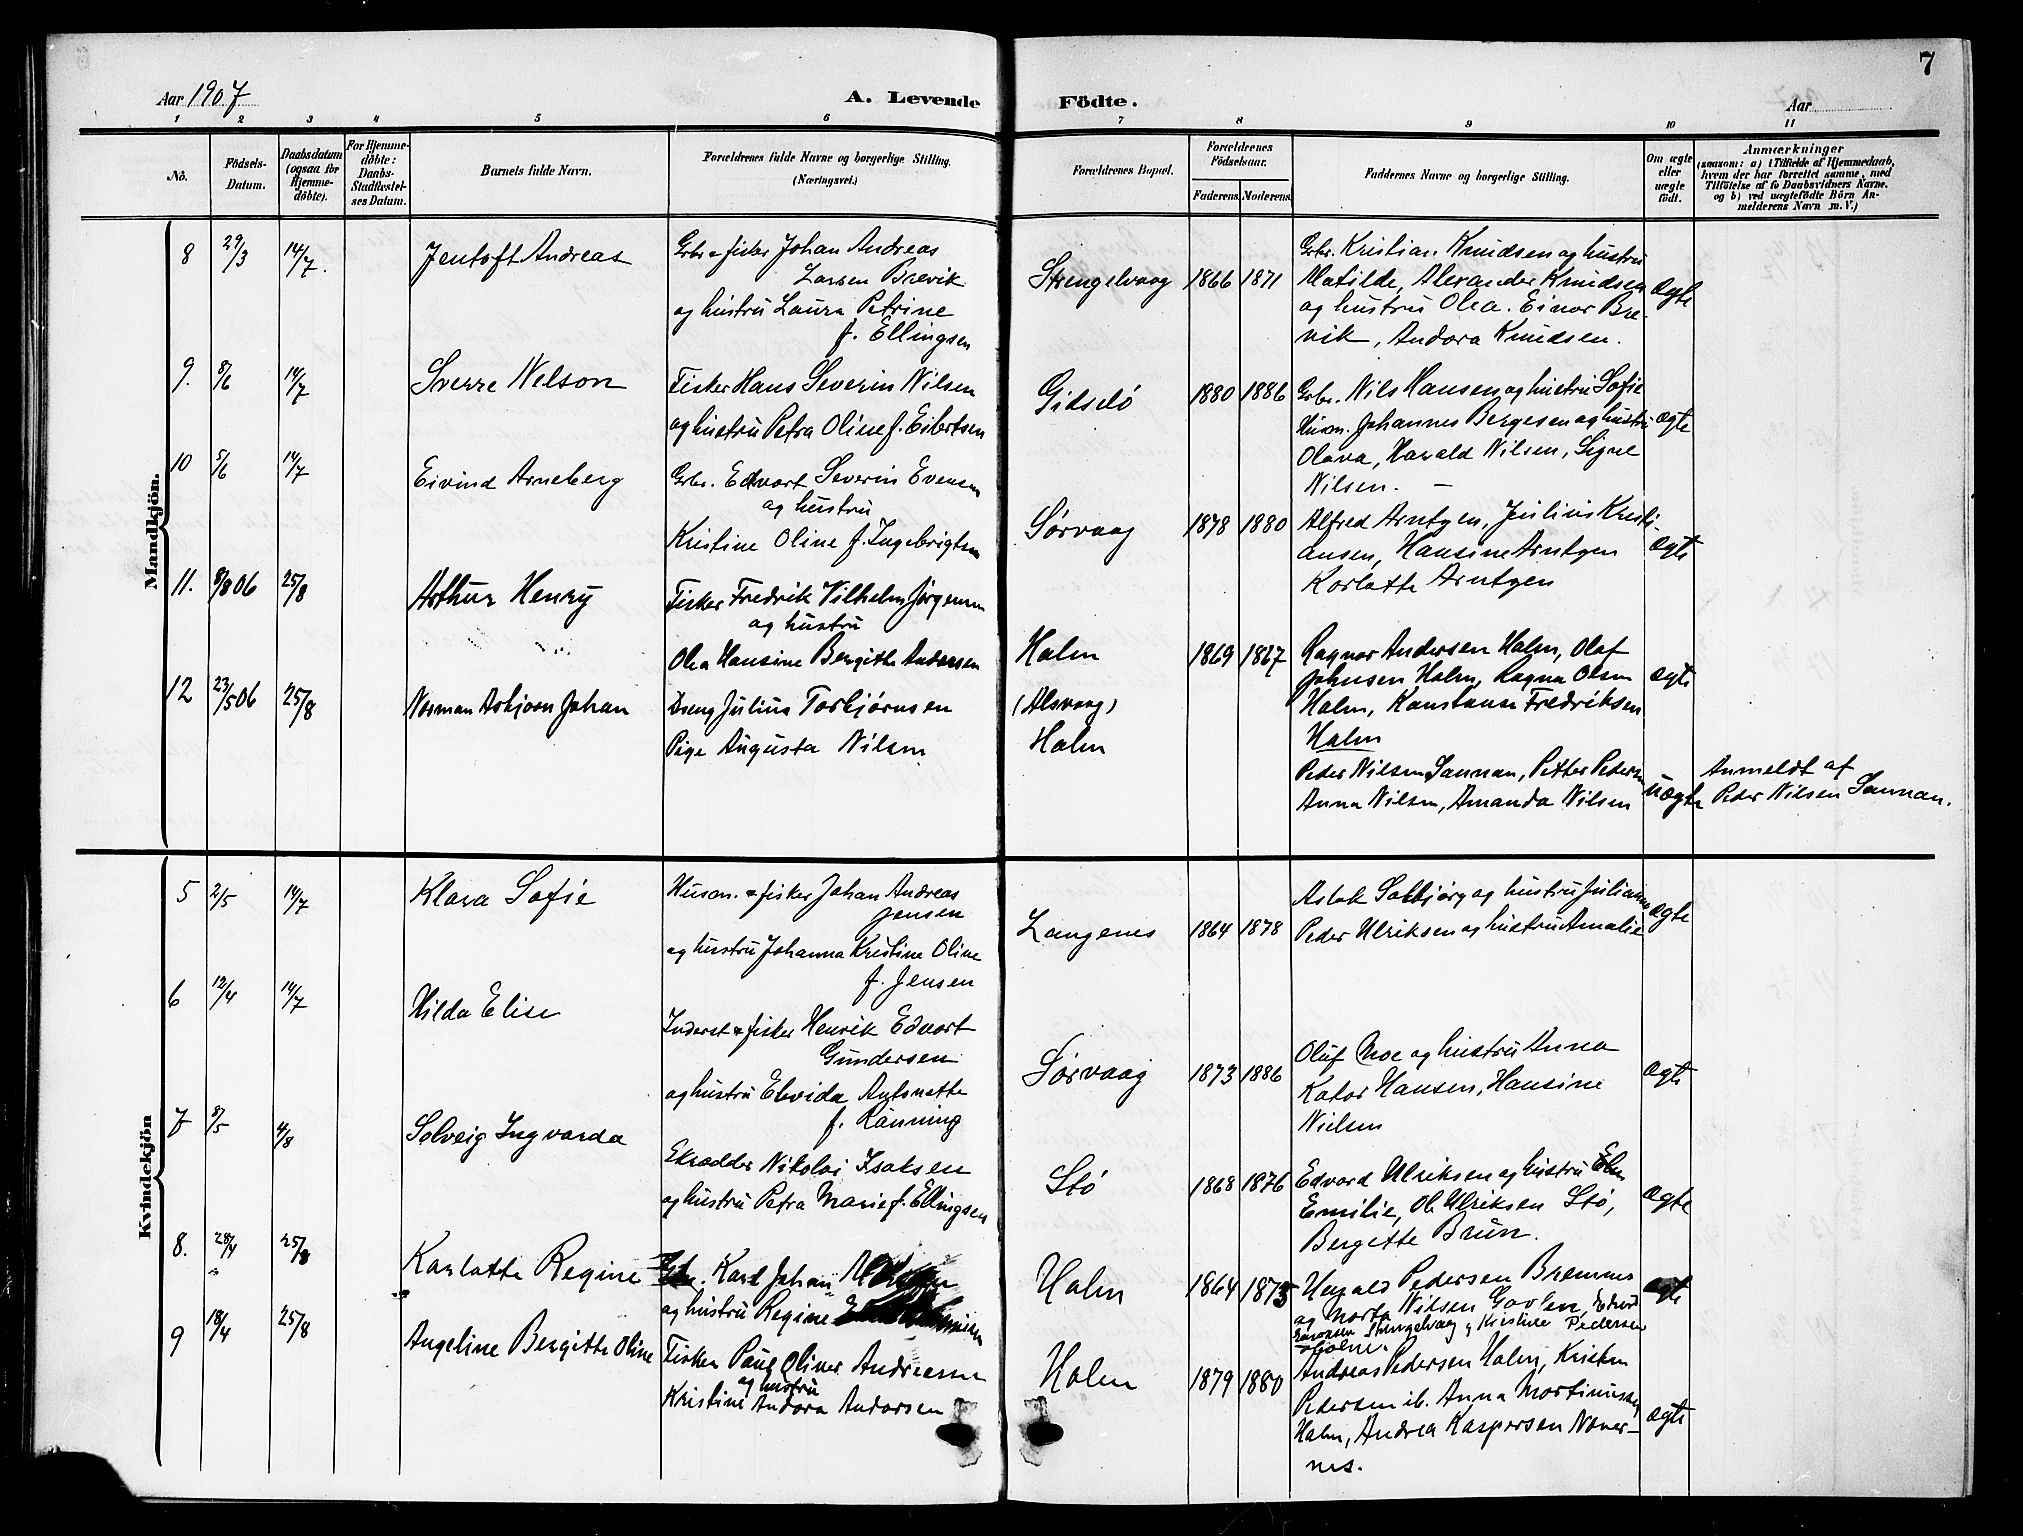 7
Aar 1907
A. Levende
Födte.
Aar
1 2 3 4 5 6 7 8 9 10 11
No.
Födsels-
Datum.
Daabsdatum
(ogsaa for
Hjemme-
döbte).
For Hjemme-
döbte:
Daabs-
Stadfæstel-
ses Datum.
Barnets fulde Navn.
Forældrenes fulde Navne og borgerlige Stilling.
(Næringsvei.)
Forældrenes Bopæl.
Forældrenes
Födselsaar.
Faderens. Moderens.
Faddernes Navne og borgerlige Stilling.
Om ægte
eller
uægte
födt.
Anmærkninger
(saasom: a) i Tilfælde af Hjemmedaab,
hvem der har forrettet samme, med
Tilföielse af to Daabsvidners Navne.
og b) ved uægtefödte Börn An-
melderens Navn m. V.)
Mandkjön.
8 29/3 14/7. Jentoft Andreas
Gbr. & fisker Johan Andreas
Larsen Brevik
og hustru Laura Petrine
f. Ellingsen
Strengelvaag 1866 1871
Gbr. Kristian Knudsen og hustru
Matilde, Alexander Knudsen
og hustru Olea. Einar Bre-
vik, Andora Knudsen.
ægte
9. 8/6 14/7 Sverre Nelson
Fisker Hans Severin Nilsen
og hustru Petra Oline f. Eibertsen
Gidslö 1880 1886
Gbr. Nils Hansen og hustru Sofie
Husm. Johannes Bergesen og hustru
Olava, Harald Nilsen, Signe
Nilsen. –
ægte
10 5/6 14/7 Eivind Arneberg
Gbr. Edvart Severin Evensen
og hustru
Kristine Oline f. Ingebrigtsen
Sørvaag 1878 1880
Alfred Arntzen, Julius Kristi-
ansen, Hansine Arntzen
Karlotte Arntzen
ægte
11. 8/8 06 25/8 Arthur Henry
Fisker Fredrik Vilhelm Jørgensen
og hustru
Olea Hansine Bergitte Andersen
Holm 1869 1867
Ragnar Andersen Holm, Olaf
Johnsen Holm, Ragna Olsen
Holm, Konstanse Fredriksen
Holm
ægte
12 23/5 06 25/8 Norman Asbjørn Johan
Dreng Julius Torbjørnsen
Pige Augusta Nilsen
(Alsvaag)
Holm
Peder Nilsen Sannan, Petter Pedersen
Anna Nilsen, Amanda Nilsen
uægte
Anmeldt af
Peder Nilsen Sannan.
Kvindekjön
5 2/5 14/7 Klara Sofie
Husm. & fisker Johan Andreas
Jensen
og hustru Johanna Kristine Oline
f. Jensen
Langenes 1864 1878
Aslak Solbjørg og hustru Julianne
Peder Ulriksen og hustru Amalie
ægte
6 12/4 14/7 Hilda Elise
Inderst & fisker Henrik Edvart
Gundersen
og hustru Elvida Antonette
f. Rånning
Sørvaag 1873 1886
Oluf Moe og hustru Anna
Kator Hansen, Hansine
Nielsen
ægte
7 8/5 4/8 Solveig Ingvarda
Skrædder Nikolai Isaksen
og hustru Petra Marie f. Ellingsen
Stö 1868 1876
Edvard Ulriksen og hustru
Emilie, Ole Ulriksen Stö,
Bergitte Brun.
ægte
8. 28/4 25/8 Karlotte Regine
Karl Johan
og hustru Regine
Holm 1864 1873
Harald Pedersen Bremnes
og Marta Nilsen Gavlen,
Strengelvaag & Kristine Pedersen
Holm.
ægte
9 18/4 25/8 Angeline Bergitte Oline
Fisker Paul Oliver Andreassen
og hustru
Kristine Andora Andorsen
Holm 1879 1880
Andreas Pedersen Holm, Kristen
Pedersen ib. Anna Martinussen
Holm, Andrea Kaspersen Nover-
nes.
ægte